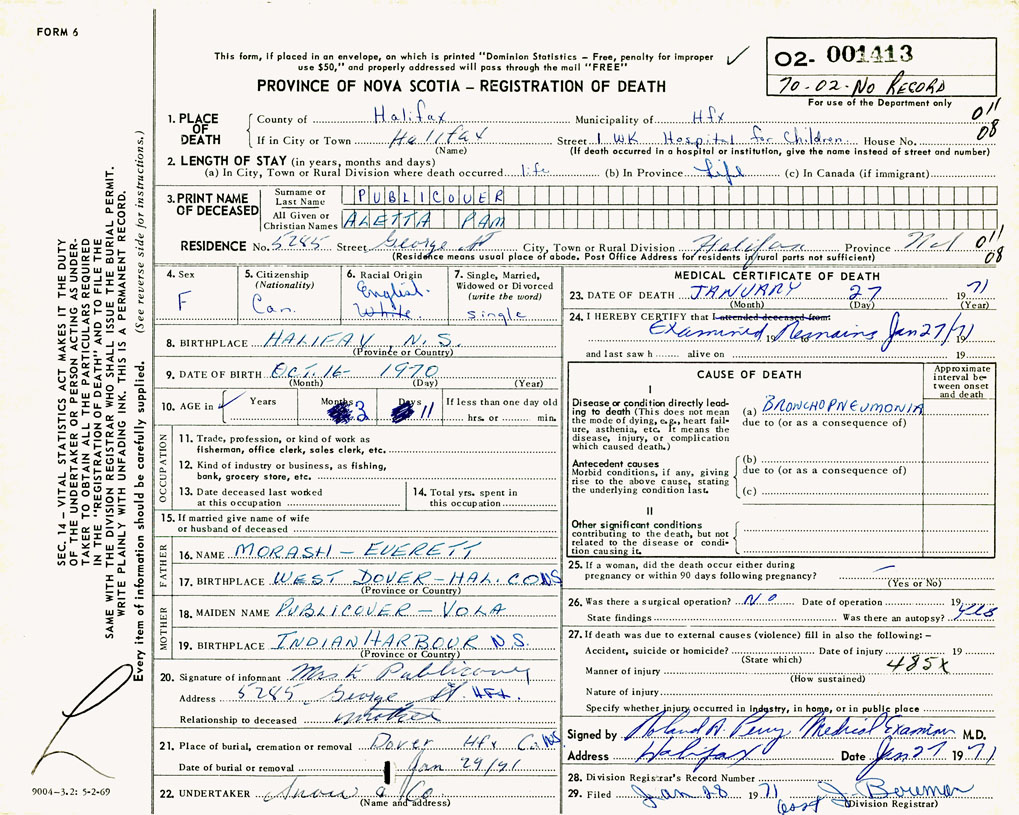 FORM 6
This form, if placed in an envelope, on which is printed "Dominion Statistics – Free, penalty for improper
use $50," and properly addressed will pass through the mail "FREE"
O2- 001413
70-02-No RECORD
For use of the Department only
PROVINCE OF NOVA SCOTIA – REGISTRATION OF DEATH
1. PLACE OF DEATH
County of Halifax Municipality of Hfx 011
If in City or Town Halifax Street I WK Hospital for Children House No. 08
(Name) (If death occurred in a hospital or institution, give the name instead of street and number)
2. LENGTH OF STAY (in years, months and days)
(a) In City, Town or Rural Division where death occurred life (b) In Province Life (c) In Canada (if immigrant)
3. PRINT NAME OF DECEASED
Surname or Last Name PUBLICOVER
All Given or Christian Names ALETTA PAM
RESIDENCE No. 5285 Street George St City, Town or Rural Division Halifax Province N.S. 011
(Residence means usual place of abode. Post Office Address for residents in rural parts not sufficient) 08
4. Sex F
5. Citizenship (Nationality) Can.
6. Racial Origin English. White
7. Single, Married, Widowed or Divorced (write the word) single
8. BIRTHPLACE HALIFAX, N.S.
(Province or Country)
9. DATE OF BIRTH OCT. 16 1970
(Month) (Day) (Year)
10. AGE in Years Months 3 Days 11 If less than one day old
hrs. or min.
OCCUPATION
11. Trade, profession, or kind of work as
fisherman, office clerk, sales clerk, etc.
12. Kind of industry or business, as fishing,
bank, grocery store, etc.
13. Date deceased last worked
at this occupation
14. Total yrs. spent in
this occupation
15. If married give name of wife
or husband of deceased
FATHER
16. NAME MORASH – EVERETT
17. BIRTHPLACE WEST DOVER-HAL. CO NS
(Province or Country)
MOTHER
18. MAIDEN NAME PUBLICOVER – VOLA
19. BIRTHPLACE INDIAN HARBOUR N.S.
(Province or Country)
20. Signature of informant Mrs E Publicover
Address 5285 George St. Hfx.
Relationship to deceased mother
21. Place of burial, cremation or removal Dover Hfx Co. NS
Date of burial or removal Jan 29/71
22. UNDERTAKER Snow & Co.
(Name and address)
MEDICAL CERTIFICATE OF DEATH
23. DATE OF DEATH JANUARY 27 1971
(Month) (Day) (Year)
24. I HEREBY CERTIFY that I attended deceased from:
Examined Remains Jan 27/71
19 19
and last saw h alive on 19
CAUSE OF DEATH
Approximate interval between onset and death
I
Disease or condition directly leading to death (This does not mean the mode of dying, e.g., heart failure, asthenia, etc. It means the disease, injury, or complication which caused death.)
(a) BRONCHOPNEUMONIA
due to (or as a consequence of)
Antecedent causes
Morbid conditions, if any, giving rise to the above cause, stating the underlying condition last.
(b)
due to (or as a consequence of)
(c)
II
Other significant conditions
contributing to the death, but not related to the disease or condition causing it.
25. If a woman, did the death occur either during
pregnancy or within 90 days following pregnancy? –
(Yes or No)
26. Was there a surgical operation? No Date of operation 19
State findings Was there an autopsy? Yes
27. If death was due to external causes (violence) fill in also the following: –
Accident, suicide or homicide? Date of injury 19
(State which) 485X
Manner of injury
(How sustained)
Nature of injury
Specify whether injury occurred in industry, in home, or in public place
Signed by Roland A. Perry Medical Examiner M.D.
Address Halifax Date Jan 27 1971
28. Division Registrar's Record Number
29. Filed Jan 28 1971
(Division Registrar)
SEC. 14 – VITAL STATISTICS ACT MAKES IT THE DUTY
OF THE UNDERTAKER OR PERSON ACTING AS UNDER-
TAKER TO OBTAIN ALL THE PARTICULARS REQUIRED
IN THE "REGISTRATION OF DEATH" AND TO FILE THE
SAME WITH THE DIVISION REGISTRAR WHO SHALL ISSUE THE BURIAL PERMIT.
WRITE PLAINLY WITH UNFADING INK. THIS IS A PERMANENT RECORD.
Every item of information should be carefully supplied. (See reverse side for instructions.)
9004-3.2: 5-2-69